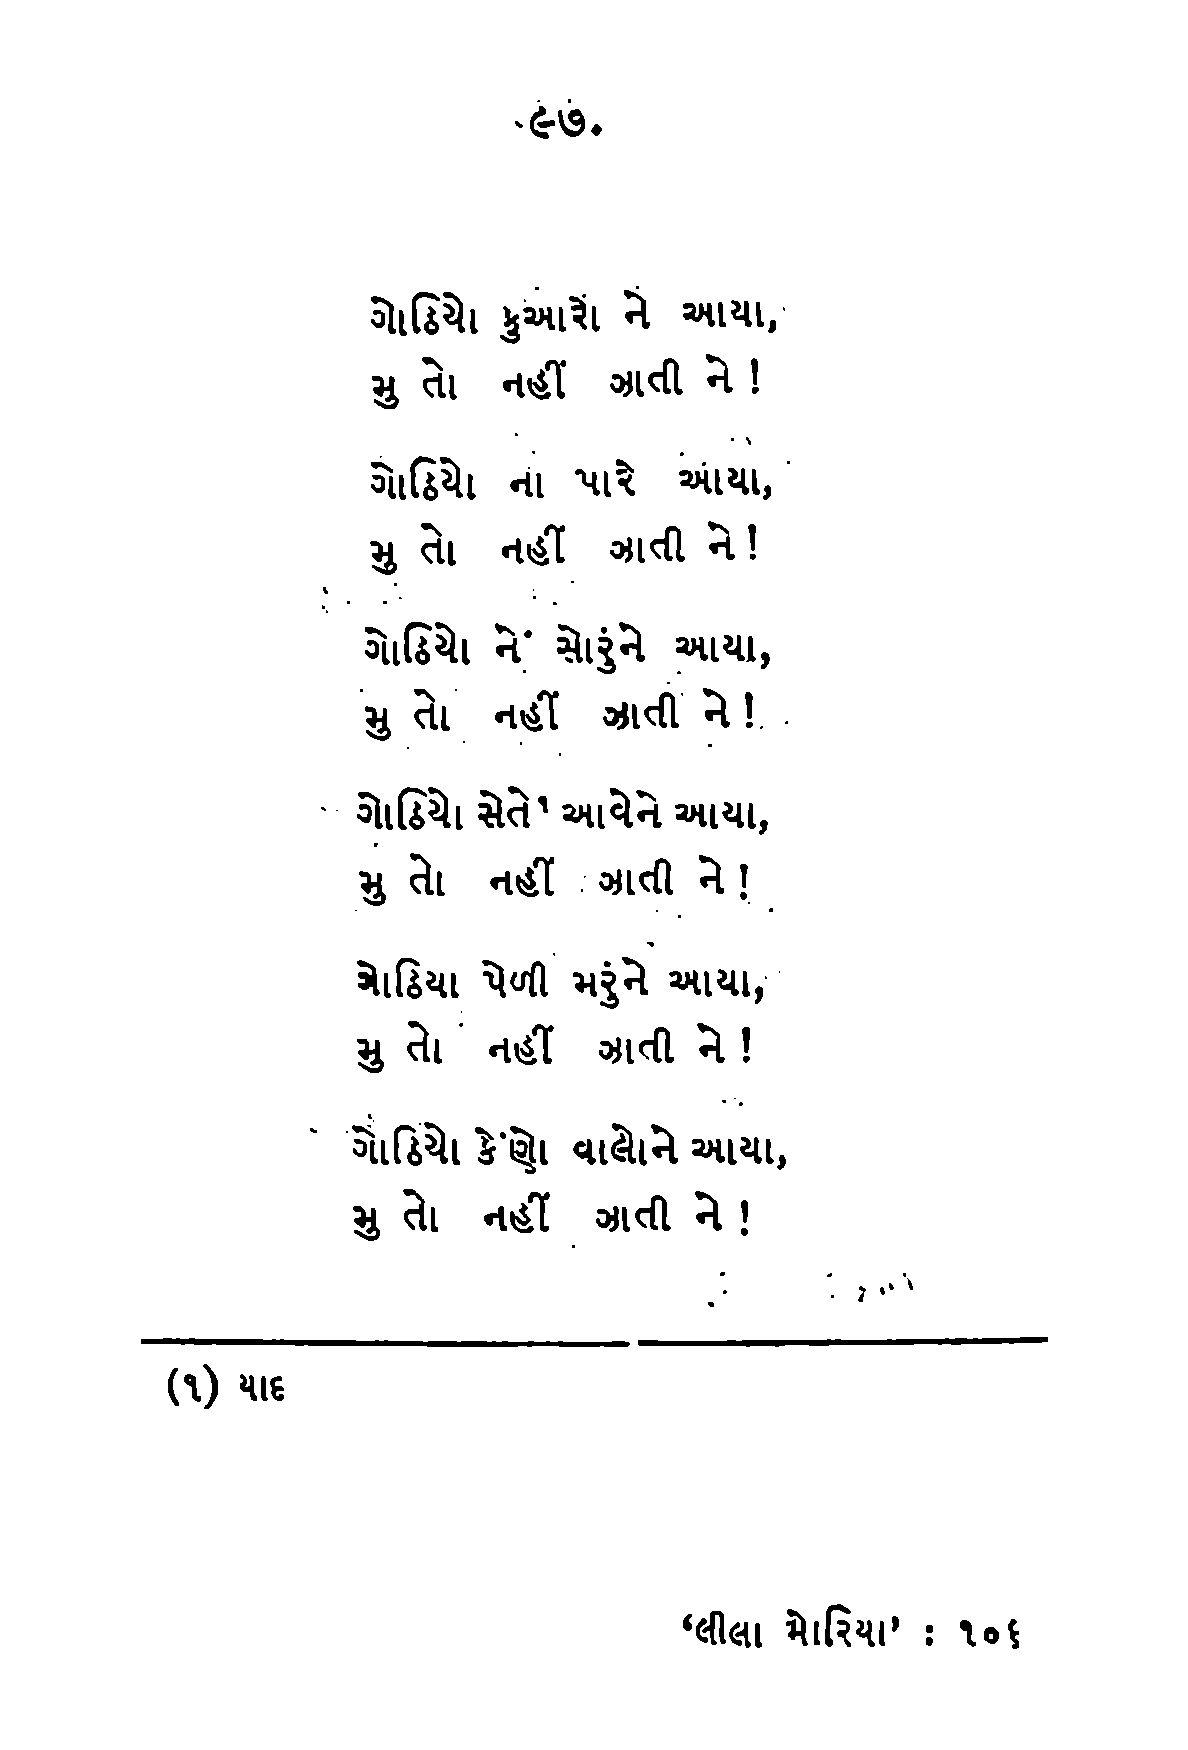 ૯૭.
ગોઠિયો કુઆરો ને આયા,
મુ તો નહીં ઝાતી ને !
ગોઠિયો ના પારે આયા,
મુ તો નહીં ઝાતી ને !
ગોઠિયો નેં સોરુંને આયા,
મુ તો નહીં ઝાતી ને !
ગોઠિયો સેતે૧ આવેને આયા,
મુ તો નહીં ઝાતી ને !
ગોઠિયા પેળી મરુંને આયા,
મુ તો નહીં ઝાતી ને !
ગોઠિયો કેંણો વાલોને આયા,
મુ તો નહીં ઝાતી ને !
(૧) યાદ
‘લીલા મોરિયા’ : ૧૦૬